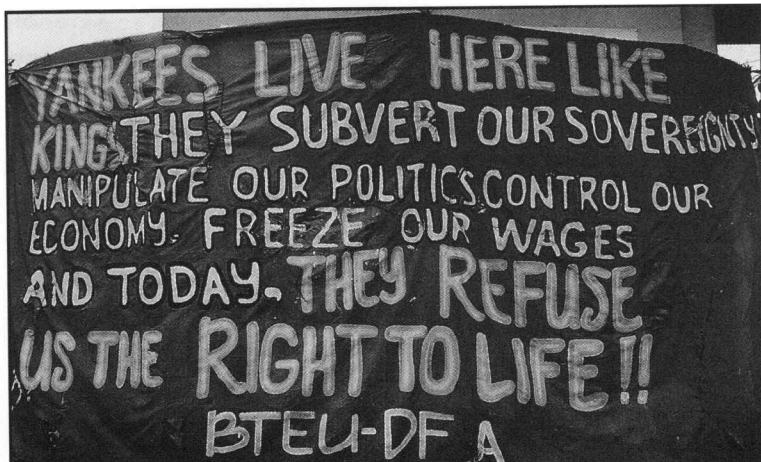 YANKEES LIVE HERE LIKE
KINGS, THEY SUBVERT OUR SOVEREIGNTY
MANIPULATE OUR POLITICS, CONTROL OUR
ECONOMY. FREEZE OUR WAGES
AND TODAY, THEY REFUSE
US THE RIGHT TO LIFE!!
BTEU-DFA